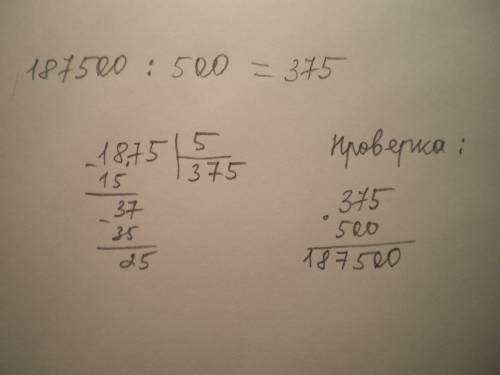 187500 : 500 = 375
- 1875 | 5
15 | 375
- 37
35
25
Проверка:
375
· 500
187500